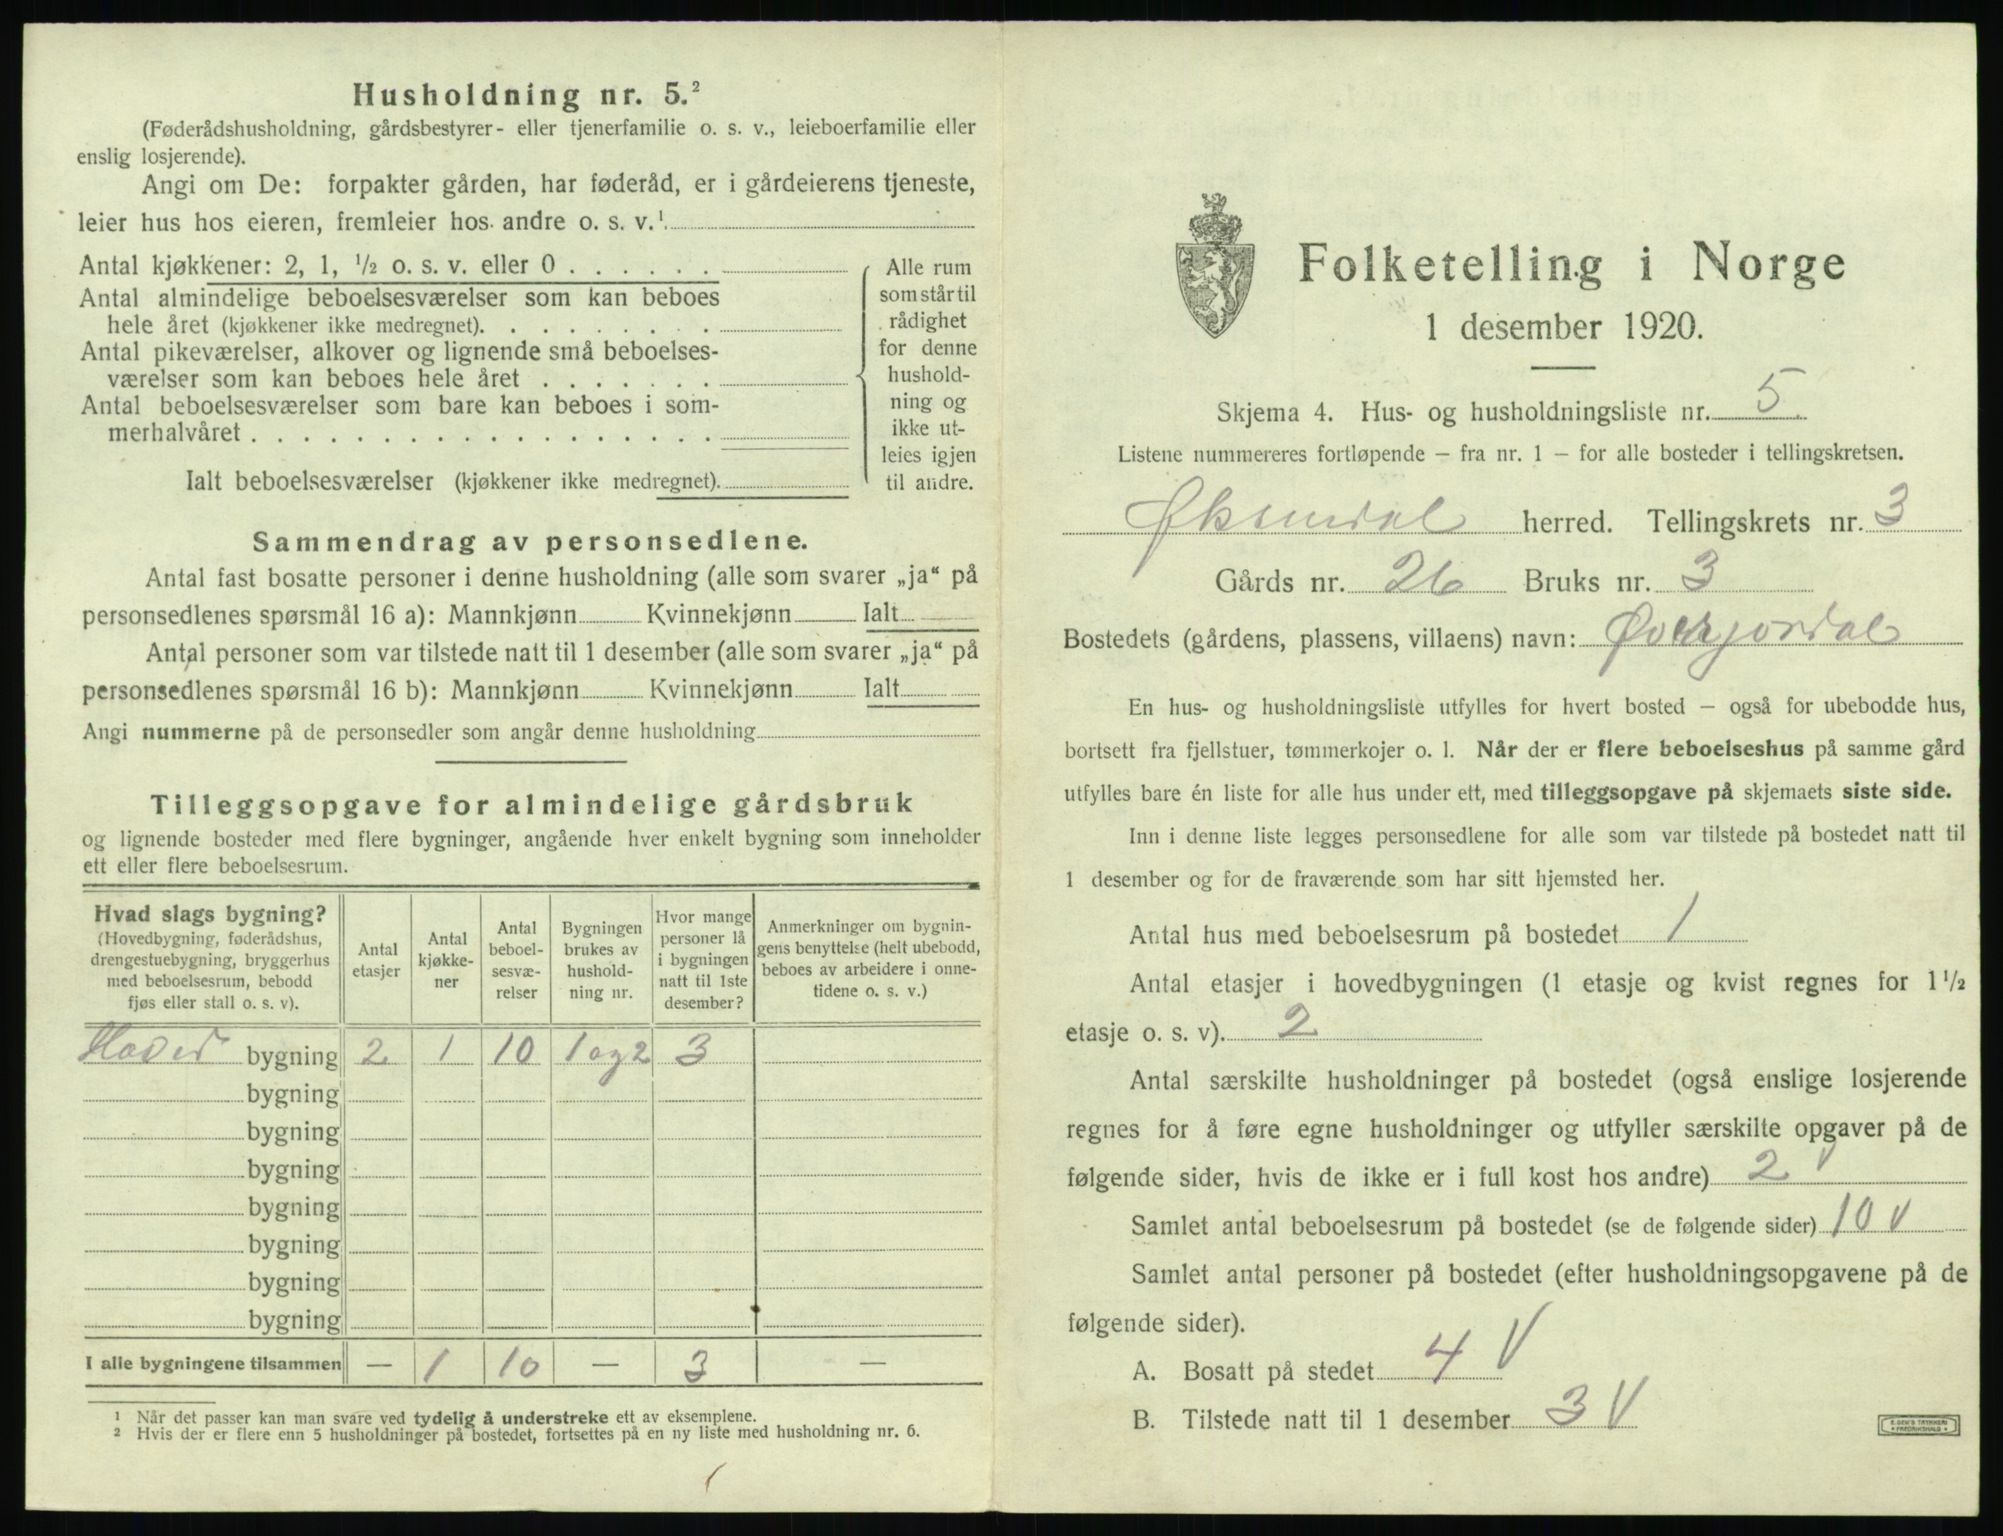 Husholdning nr. 5.²
(Føderådshusholdning, gårdsbestyrer- eller tjenerfamilie o. s. v., leieboerfamilie eller
enslig losjerende).
Angi om De: forpakter gården, har føderåd, er i gårdeierens tjeneste,
leier hus hos eieren, fremleier hos andre o. s. v.¹
Antal kjøkkener: 2, 1, ½ o. s. v. eller 0 . . . . . .
Antal almindelige beboelsesværelser som kan beboes
hele året (kjøkkener ikke medregnet). . . . . . . . .
Antal pikeværelser, alkover og lignende små beboelses-
værelser som kan beboes hele året . . . . . . .
Antal beboelsesværelser som bare kan beboes i som-
merhalvåret . . . . . . . . . . . . . . . . . .
Ialt beboelsesværelser (kjøkkener ikke medregnet).
Alle rum
som står til
rådighet
for denne
hushold-
ning og
ikke ut-
leies igjen
til andre.
Sammendrag av personsedlene.
Antal fast bosatte personer i denne husholdning (alle som svarer „ja“ på
personsedlenes spørsmål 16 a): Mannkjønn Kvinnekjønn Ialt
Antal personer som var tilstede natt til 1 desember (alle som svarer „ja“ på
personsedlenes spørsmål 16 b): Mannkjønn Kvinnekjønn Ialt
Angi nummerne på de personsedler som angår denne husholdning
Tilleggsopgave for almindelige gårdsbruk
og lignende bosteder med flere bygninger, angående hver enkelt bygning som inneholder
ett eller flere beboelsesrum.
Hvad slags bygning?
(Hovedbygning, føderådshus,
drengestuebygning, bryggerhus
med beboelsesrum, bebodd
fjøs eller stall o. s. v).
Antal
etasjer
Antal
kjøkke-
ner
Antal
beboel-
sesvæ-
relser
Bygningen
brukes av
hushold-
ning nr.
Hvor mange
personer lå
i bygningen
natt til 1ste
desember?
Anmerkninger om bygnin-
gens benyttelse (helt ubebodd,
beboes av arbeidere i onne-
tidene o. s. v.)
Hoved bygning 2 1 10 1 og 2 3
bygning
bygning
bygning
bygning
bygning
bygning
bygning
I alle bygningene tilsammen — 1 10 — 3 —
¹ Når det passer kan man svare ved tydelig å understreke ett av eksemplene.
² Hvis der er flere enn 5 husholdninger på bostedet, fortsettes på en ny liste med husholdning nr. 6.
Folketelling i Norge
1 desember 1920.
Skjema 4. Hus- og husholdningsliste nr. 5.
Listene nummereres fortløpende – fra nr. 1 – for alle bosteder i tellingskretsen.
Øksendal herred. Tellingskrets nr. 3
Gårds nr. 26 Bruks nr. 3
Bostedets (gårdens, plassens, villaens) navn: Øverjordal
En hus- og husholdningsliste utfylles for hvert bosted – også for ubebodde hus,
bortsett fra fjellstuer, tømmerkojer o. l. Når der er flere beboelseshus på samme gård
utfylles bare én liste for alle hus under ett, med tilleggsopgave på skjemaets siste side.
Inn i denne liste legges personsedlene for alle som var tilstede på bostedet natt til
1 desember og for de fraværende som har sitt hjemsted her.
Antal hus med beboelsesrum på bostedet 1
Antal etasjer i hovedbygningen (1 etasje og kvist regnes for 1½
etasje o. s. v). 2
Antal særskilte husholdninger på bostedet (også enslige losjerende
regnes for å føre egne husholdninger og utfyller særskilte opgaver på de
følgende sider, hvis de ikke er i full kost hos andre) 2 V
Samlet antal beboelsesrum på bostedet (se de følgende sider) 10 V
Samlet antal personer på bostedet (efter husholdningsopgavene på de
følgende sider).
A. Bosatt på stedet 4 V
B. Tilstede natt til 1 desember 3 V